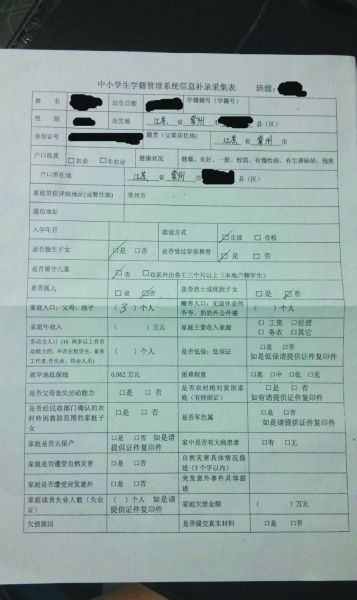 中小学生学籍管理系统信息补录采集表 班级：
姓 名 出生日期 学籍辅号（学籍号）
性 别 出生地 江苏 省 常州 市 县（区）
身份证号 籍贯（父辈居住地） 江苏 省 常州 市
户口性质 □农业 □非农业 健康状况 健康、良好、一般、较弱、有慢性病、有生理缺陷、残疾
户口所在地 江苏 省 常州 市 县（区）
家庭常住详细地址（或暂住地） 常州市
通信地址
入学年月 就读方式 □走读 □住校
是否独生子女 □是 □否 是否受过学前教育 □是 □否
是否留守儿童 □否 □双亲外出务工三个月以上（本地户籍学生）
是否孤儿 □是 □否 是否烈士或优抚子女 □是 □否
家庭人口：父母、孩子 （ 3 ）个人 赡养人口：无退休金的爷爷、奶奶外公外婆 （ ）个人
家庭年收入 （ ）万元 家庭主要收入来源 □ 工资 □经营
□ 务农 □其它
劳动力人口（16 周岁以上有劳动能力的，不含在校学生、家务工作者，含失业、待业人员） （ ）个人 是否低保：低保证 □是 □否
如是低保请提供证件复印件
就学地低保线 0.062 万元 困难程度 □高 □中 □低 □无
是否父母丧失劳动能力 □是 □否 是否农村绝对贫困家庭（有特困证） □是 □否
如有请提供证件复印件
是否经民政部门确认的农村特困救助范围的家庭子女 □是 □否 是否军烈属 □是 □否
如是请提供证件复印件
家庭是否五保户 □是 □否 如是请提供证件复印件 家中是否有大病患者 □有 □无
家庭是否遭受自然灾害 □是 □否 自然灾害具体情况描述（5 个字以内）
家庭是否遭受突发意外 □是 □否 突发意外事件具体描述
家庭成员失业人数（失业证） （ ）个人 如是请提供证件复印件 家庭欠债金额 （ ）万元
欠债原因 是否提交真实材料 □是 □否